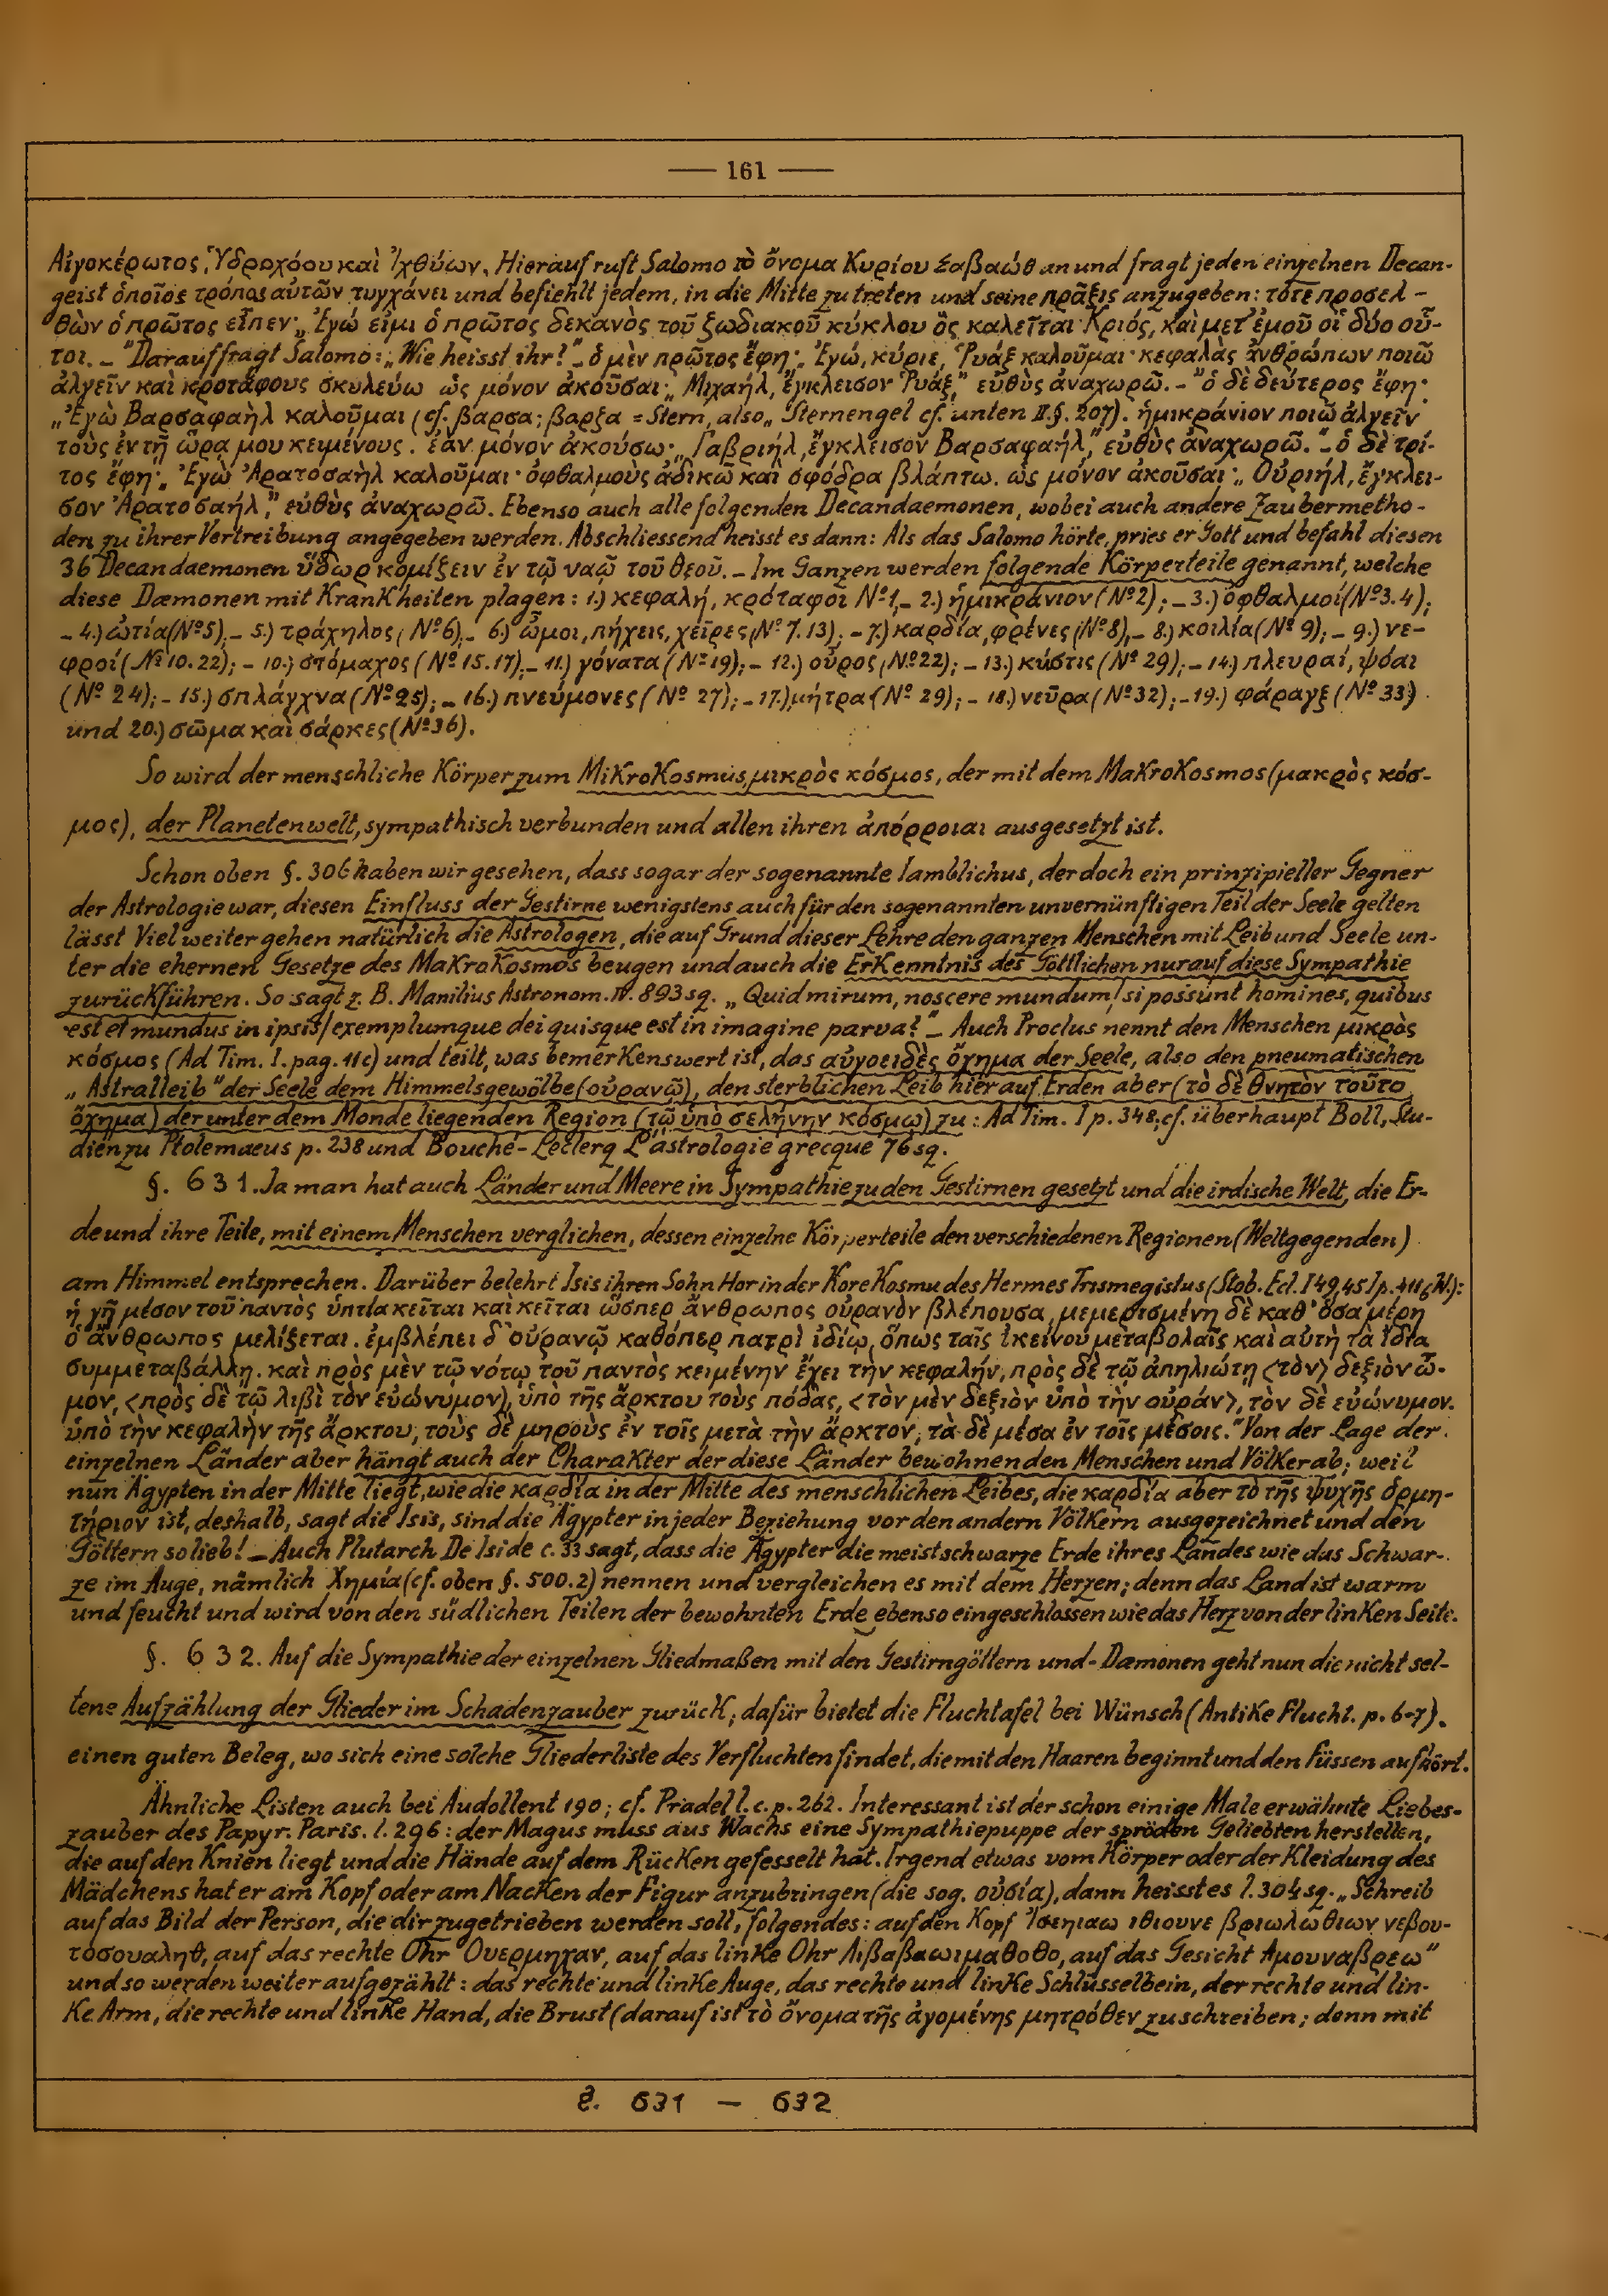 — 161 —
Αἰγοκέρωτος, Ὑδροχόου καὶ Ἰχθύων. Hierauf ruft Salomo τὸ ὄνομα Κυρίου Σαβαώθ an und fragt jeden einzelnen Decan-
geist ὁποῖος τρόπος αὐτῶν τυγχάνει und befiehlt jedem, in die Mitte zu treten und seine πρᾶξις anzugeben: τότε προσελ-
θὼν ὁ πρῶτος εἶπεν· „Ἐγώ εἰμι ὁ πρῶτος δεκανὸς τοῦ ζωδιακοῦ κύκλου ὃς καλεῖται Κριός, καὶ μετ' ἐμοῦ οἱ δύο οὗ-
τοι. – "Darauf fragt Salomo: „Wie heisst ihr?" – ὁ μὲν πρῶτος ἔφη· „Ἐγώ, κύριε, Ῥυάξ καλοῦμαι· κεφαλὰς ἀνθρώπων ποιῶ
ἀλγεῖν καὶ κροτάφους σκυλεύω ὡς μόνον ἀκοῦσαι· „Μιχαήλ, ἔγκλεισον Ῥυάξ," εὐθὺς ἀναχωρῶ. – "ὁ δὲ δεύτερος ἔφη·
„Ἐγὼ Βαρσαφαὴλ καλοῦμαι (cf. βαρσα; βαρξα = Stern, also „Sternengel cf. unten II. §. 207). ἡμικράνιον ποιῶ ἀλγεῖν
τοὺς ἐν τῇ ὥρᾳ μου κειμένους. ἐὰν μόνον ἀκούσω· „Γαβριήλ, ἔγκλεισον Βαρσαφαήλ," εὐθὺς ἀναχωρῶ." – ὁ δὲ τρί-
τος ἔφη· „Ἐγὼ Ἀρατοσαὴλ καλοῦμαι· ὀφθαλμοὺς ἀδικῶ καὶ σφόδρα βλάπτω. ὡς μόνον ἀκοῦσαι· „Οὐριήλ, ἔγκλει-
σον Ἀρατοσαήλ," εὐθὺς ἀναχωρῶ. Ebenso auch alle folgenden Decandaemonen, wobei auch andere Zaubermetho-
den zu ihrer Vertreibung angegeben werden. Abschliessend heisst es dann: Als das Salomo hörte, pries er Gott und befahl diesen
36 Decandaemonen ὕδωρ κομίζειν ἐν τῷ ναῷ τοῦ θεοῦ. – Im Ganzen werden folgende Körperteile genannt, welche
diese Dæmonen mit Krankheiten plagen: 1.) κεφαλή, κρόταφοι Nº 1, – 2.) ἡμικράνιον (Nº 2); – 3.) ὀφθαλμοί (Nº 3. 4);
– 4.) ὠτία (Nº 5), – 5.) τράχηλος (Nº 6), – 6.) ὦμοι, πήχεις, χεῖρες (Nº 7. 13); – 7.) καρδία, φρένες (Nº 8), – 8.) κοιλία (Nº 9); – 9.) νε-
φροί (Nº 10. 22); – 10.) στόμαχος (Nº 15. 17), – 11.) γόνατα (Nº 19); – 12.) οὖρος (Nº 22); – 13.) κύστις (Nº 29); – 14.) πλευραί, ψόαι
(Nº 24); – 15.) σπλάγχνα (Nº 25); – 16.) πνεύμονες (Nº 27); – 17.) μήτρα (Nº 29); – 18.) νεῦρα (Nº 32); – 19.) φάραγξ (Nº 33)
und 20.) σῶμα καὶ σάρκες (Nº 36).
So wird der menschliche Körper zum Mikrokosmus, μικρὸς κόσμος, der mit dem Makrokosmos (μακρὸς κόσ-
μος), der Planetenwelt, sympathisch verbunden und allen ihren ἀπόρροιαι ausgesetzt ist.
Schon oben §. 306 haben wir gesehen, dass sogar der sogenannte Iamblichus, der doch ein prinzipieller Gegner
der Astrologie war, diesen Einfluss der Gestirne wenigstens auch für den sogenannten unvernünftigen Teil der Seele gelten
lässt Viel weiter gehen natürlich die Astrologen, die auf Grund dieser Lehre den ganzen Menschen mit Leib und Seele un-
ter die ehernen Gesetze des Makrokosmos beugen und auch die Erkenntnis des Göttlichen nur auf diese Sympathie
zurückführen. So sagt z. B. Manilius Astronom. IV. 893 sq. „Quid mirum, noscere mundum / si possunt homines, quibus
est et mundus in ipsis / exemplumque dei quisque est in imagine parva?" – Auch Proclus nennt den Menschen μικρὸς
κόσμος (Ad Tim. I. pag. 11c) und teilt, was bemerkenswert ist, das αὐγοειδὲς ὄχημα der Seele, also den pneumatischen
„Astralleib" der Seele dem Himmelsgewölbe (οὐρανῷ), den sterblichen Leib hier auf Erden aber (τὸ δὲ θνητὸν τοῦτο
ὄχημα) der unter dem Monde liegenden Region (τῷ ὑπὸ σελήνην κόσμῳ) zu: Ad Tim. I p. 348; cf. überhaupt Boll, Stu-
dien zu Ptolemaeus p. 238 und Bouché-Leclerq L'astrologie grecque 76 sq.
§. 631. Ja man hat auch Länder und Meere in Sympathie zu den Gestirnen gesetzt und die irdische Welt, die Er-
de und ihre Teile, mit einem Menschen verglichen, dessen einzelne Körperteile den verschiedenen Regionen (Weltgegenden)
am Himmel entsprechen. Darüber belehrt Isis ihren Sohn Hor in der Kore Kosmu des Hermes Trismegistus (Stob. Ecl. I 49, 45 I p. 411 W.):
ἡ γῆ μέσον τοῦ παντὸς ὑπτία κεῖται καὶ κεῖται ὥσπερ ἄνθρωπος οὐρανὸν βλέπουσα, μεμερισμένη δὲ καθ' ὅσα μέρη
ὁ ἄνθρωπος μελίζεται. ἐμβλέπει δ' οὐρανῷ καθόπερ πατρὶ ἰδίῳ, ὅπως ταῖς ἐκείνου μεταβολαῖς καὶ αὐτὴ τὰ ἴδια
συμμεταβάλλῃ. καὶ πρὸς μὲν τῷ νότῳ τοῦ παντὸς κειμένην ἔχει τὴν κεφαλήν, πρὸς δὲ τῷ ἀπηλιώτῃ <τὸν> δεξιὸν ὦ-
μον, <πρὸς δὲ τῷ λιβὶ τὸν εὐώνυμον>, ὑπὸ τῆς ἄρκτου τοὺς πόδας, <τὸν μὲν δεξιὸν ὑπὸ τὴν οὐράν>, τὸν δὲ εὐώνυμον.
ὑπὸ τὴν κεφαλὴν τῆς ἄρκτου, τοὺς δὲ μηροὺς ἐν τοῖς μετὰ τὴν ἄρκτον, τὰ δὲ μέσα ἐν τοῖς μέσοις." Von der Lage der
einzelnen Länder aber hängt auch der Charakter der diese Länder bewohnenden Menschen und Völker ab; weil
nun Ägypten in der Mitte liegt, wie die καρδία in der Mitte des menschlichen Leibes, die καρδία aber τὸ τῆς ψυχῆς ὁρμη-
τήριον ist, deshalb, sagt die Isis, sind die Ägypter in jeder Beziehung vor den andern Völkern ausgezeichnet und den
Göttern so lieb! – Auch Plutarch De Iside c. 33 sagt, dass die Ägypter die meist schwarze Erde ihres Landes wie das Schwar-
ze im Auge, nämlich Χημία (cf. oben §. 500. 2) nennen und vergleichen es mit dem Herzen; denn das Land ist warm
und feucht und wird von den südlichen Teilen der bewohnten Erde ebenso eingeschlossen wie das Herz von der linken Seite.
§. 632. Auf die Sympathie der einzelnen Gliedmaßen mit den Gestirngöttern und-Dæmonen geht nun die nicht sel-
tene Aufzählung der Glieder im Schadenzauber zurück; dafür bietet die Fluchtafel bei Wünsch (Antike Flucht. p. 6-7).
einen guten Beleg, wo sich eine solche Gliederliste des Verfluchten findet, die mit den Haaren beginnt und den Füssen aufhört.
Ähnliche Listen auch bei Audollent 190; cf. Pradel l. c. p. 262. Interessant ist der schon einige Male erwähnte Liebes-
zauber des Papyr. Paris. l. 296: der Magus muss aus Wachs eine Sympathiepuppe der spröden Geliebten herstellen,
die auf den Knien liegt und die Hände auf dem Rücken gefesselt hat. Irgend etwas vom Körper oder der Kleidung des
Mädchens hat er am Kopf oder am Nacken der Figur anzubringen (die sog. οὐσία), dann heisst es l. 304 sq. „Schreib
auf das Bild der Person, die dir zugetrieben werden soll, folgendes: auf den Kopf Ἰσεηιαω ιθιουνε βριωλωθιων νεβου-
τοσουαληθ, auf das rechte Ohr Ουερμηχαν, auf das linke Ohr Λιβαβαωιμαθοθο, auf das Gesicht Αμουναβρεω"
und so werden weiter aufgezählt: das rechte und linke Auge, das rechte und linke Schlüsselbein, der rechte und lin-
ke Arm, die rechte und linke Hand, die Brust (darauf ist τὸ ὄνομα τῆς ἀγομένης μητρόθεν zu schreiben; denn mit
§. 631 — 632